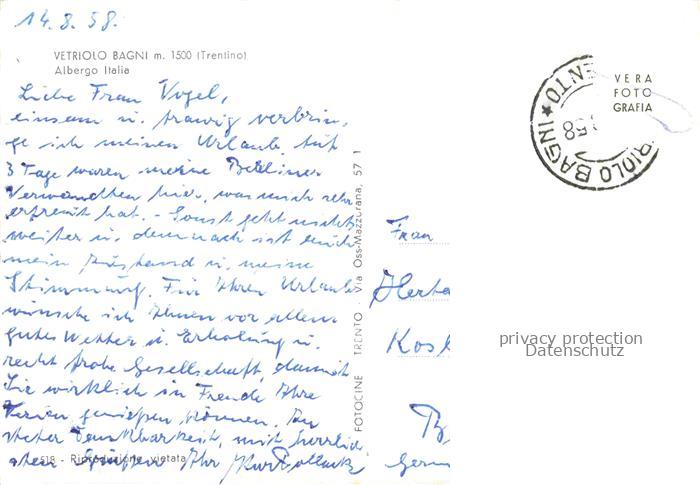 14.8.58.
VETRIOLO BAGNI m. 1500 (Trentino)
Albergo Italia
Liebe Frau Vogel,
einsam u. traurig verbrin,
ge ich meinen Urlaub. Auf
3 Tage waren meine Berliner
Verwandten hier, was mich sehr
erfreut hat. - Sonst geht nichts
weiter u. demnach ist auch
mein Zustand u. meine
Stimmung. Für Ihren Urlaub
wünsche ich Ihnen vor allem
gutes Wetter u. Erholung u.
recht frohe Gesellschaft, damit
Sie wirklich in Freude Ihre
Ferien genießen können. In
steter Dankbarkeit, mit herzlich
sten Grüßen Ihr
518 - Riproduzione vietata
FOTOCINE TRENTO - Via Oss-Mazzurana, 57 1
VERA
FOTO
GRAFIA
RIOLO BAGNI ★ ENTO
58
Frau
Herta
Kosl
privacy protection
Datenschutz